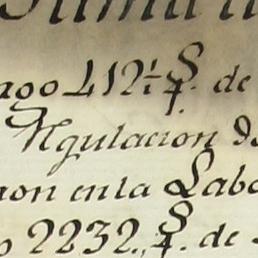 ago 412½ p.s de
Regulacion de
ion en la Labo
o 2232., p.s de